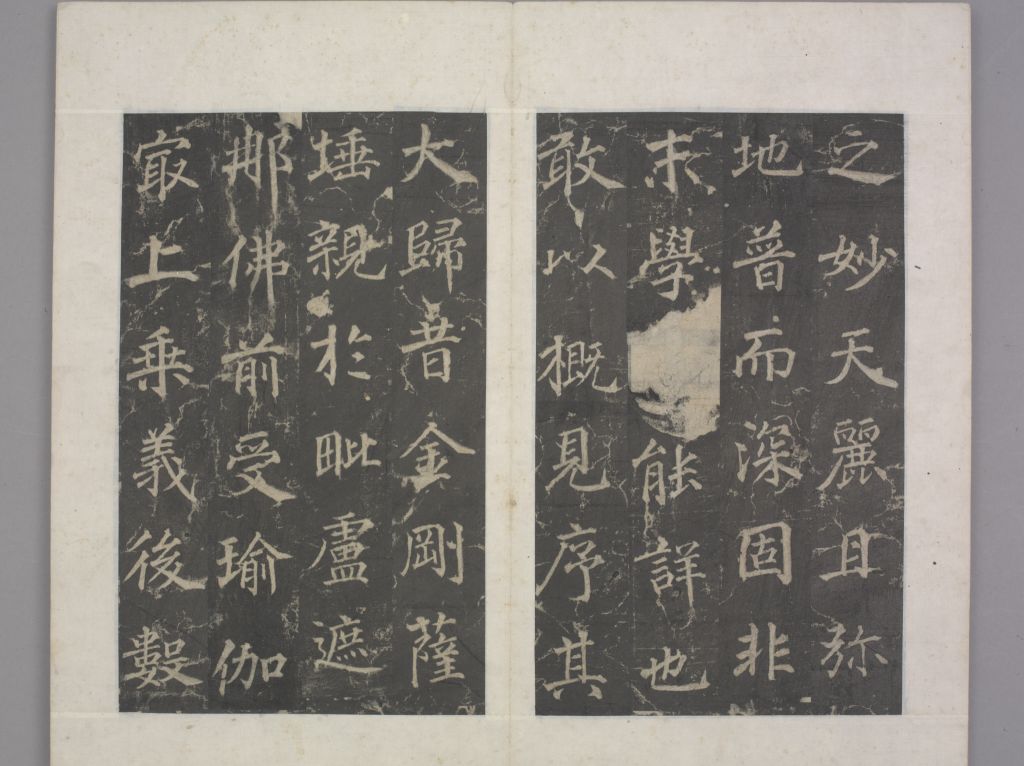 之妙天麗且弥
地普而深固非
末學能詳也
敢以概見序其
大歸昔金剛薩
埵親於毗盧遮
那佛前受瑜伽
㝡上乗義後數